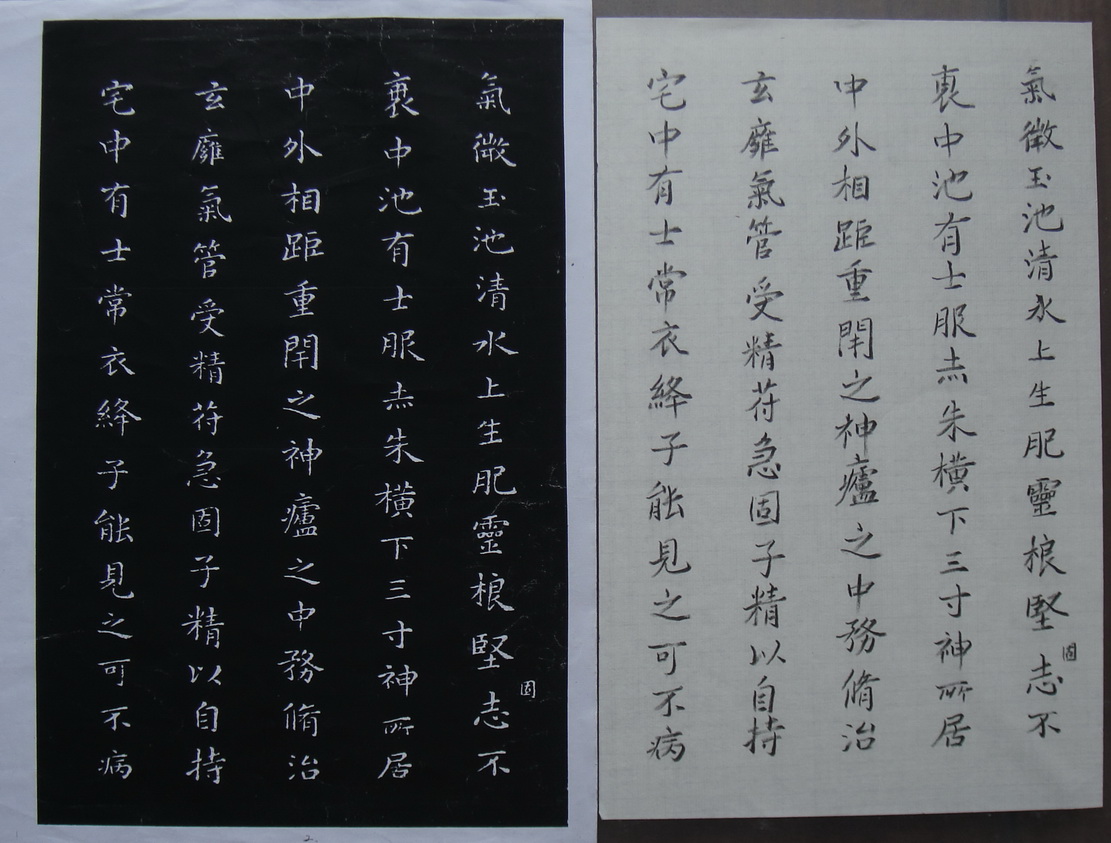 氣微玉池清水上生肥靈根堅固志不
衰中池有士服赤朱橫下三寸神所居
中外相距重閉之神廬之中務脩治
玄廱氣管受精符急固子精以自持
宅中有士常衣絳子能見之可不病
2
氣微玉池清水上生肥靈根堅固志不
衰中池有士服赤朱橫下三寸神所居
中外相距重閉之神廬之中務脩治
玄廱氣管受精符急固子精以自持
宅中有士常衣絳子能見之可不病